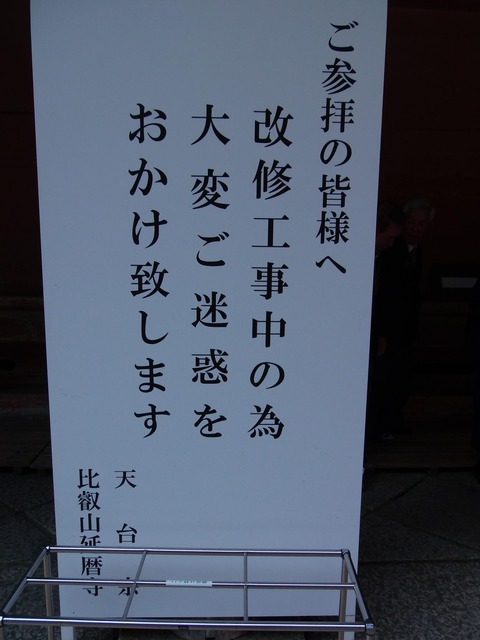 ご参拝の皆様へ
改修工事中の為
大変ご迷惑を
おかけ致します
天台宗
比叡山延暦寺